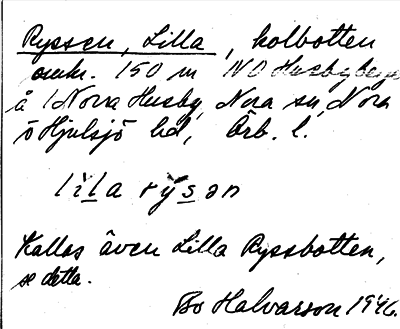 Ryssen, Lilla, kolbotten
omkr. 150 m NO Husby
å Nora Husby, Nora sn, Nora
o Hjulsjö hd, Örb. l.
lila rysən
Kallas även Lilla Ryssbotten,
se detta.
Bo Halvarson 1946.